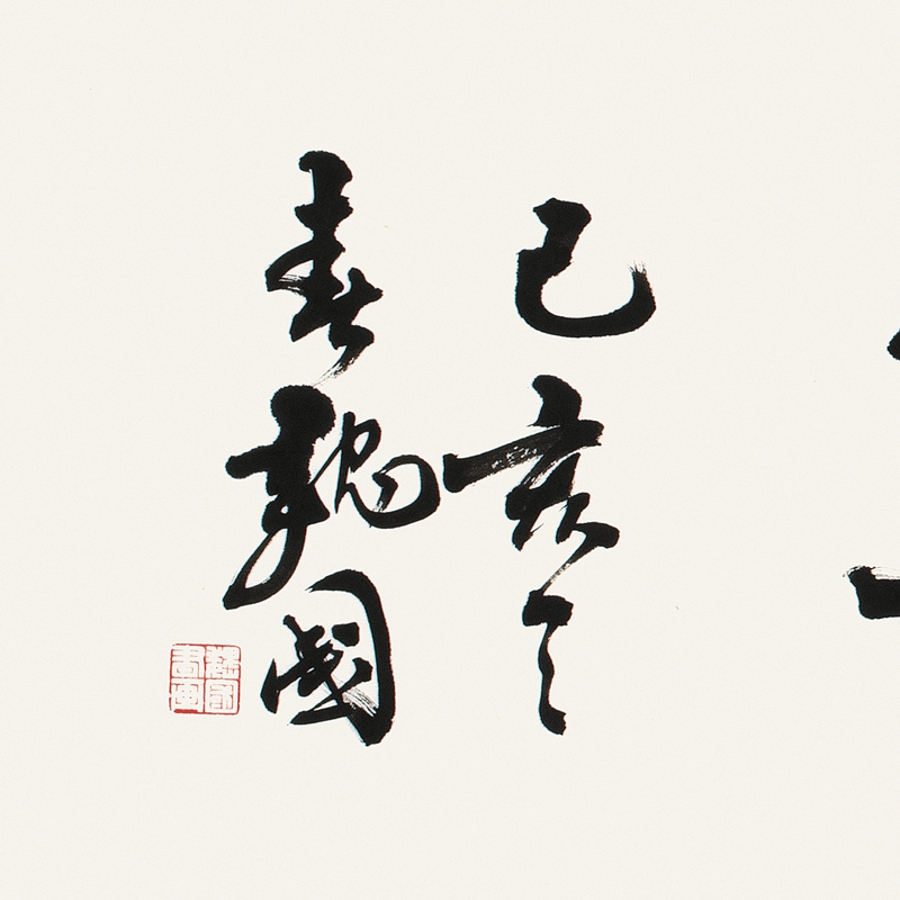 己亥之
春魏國